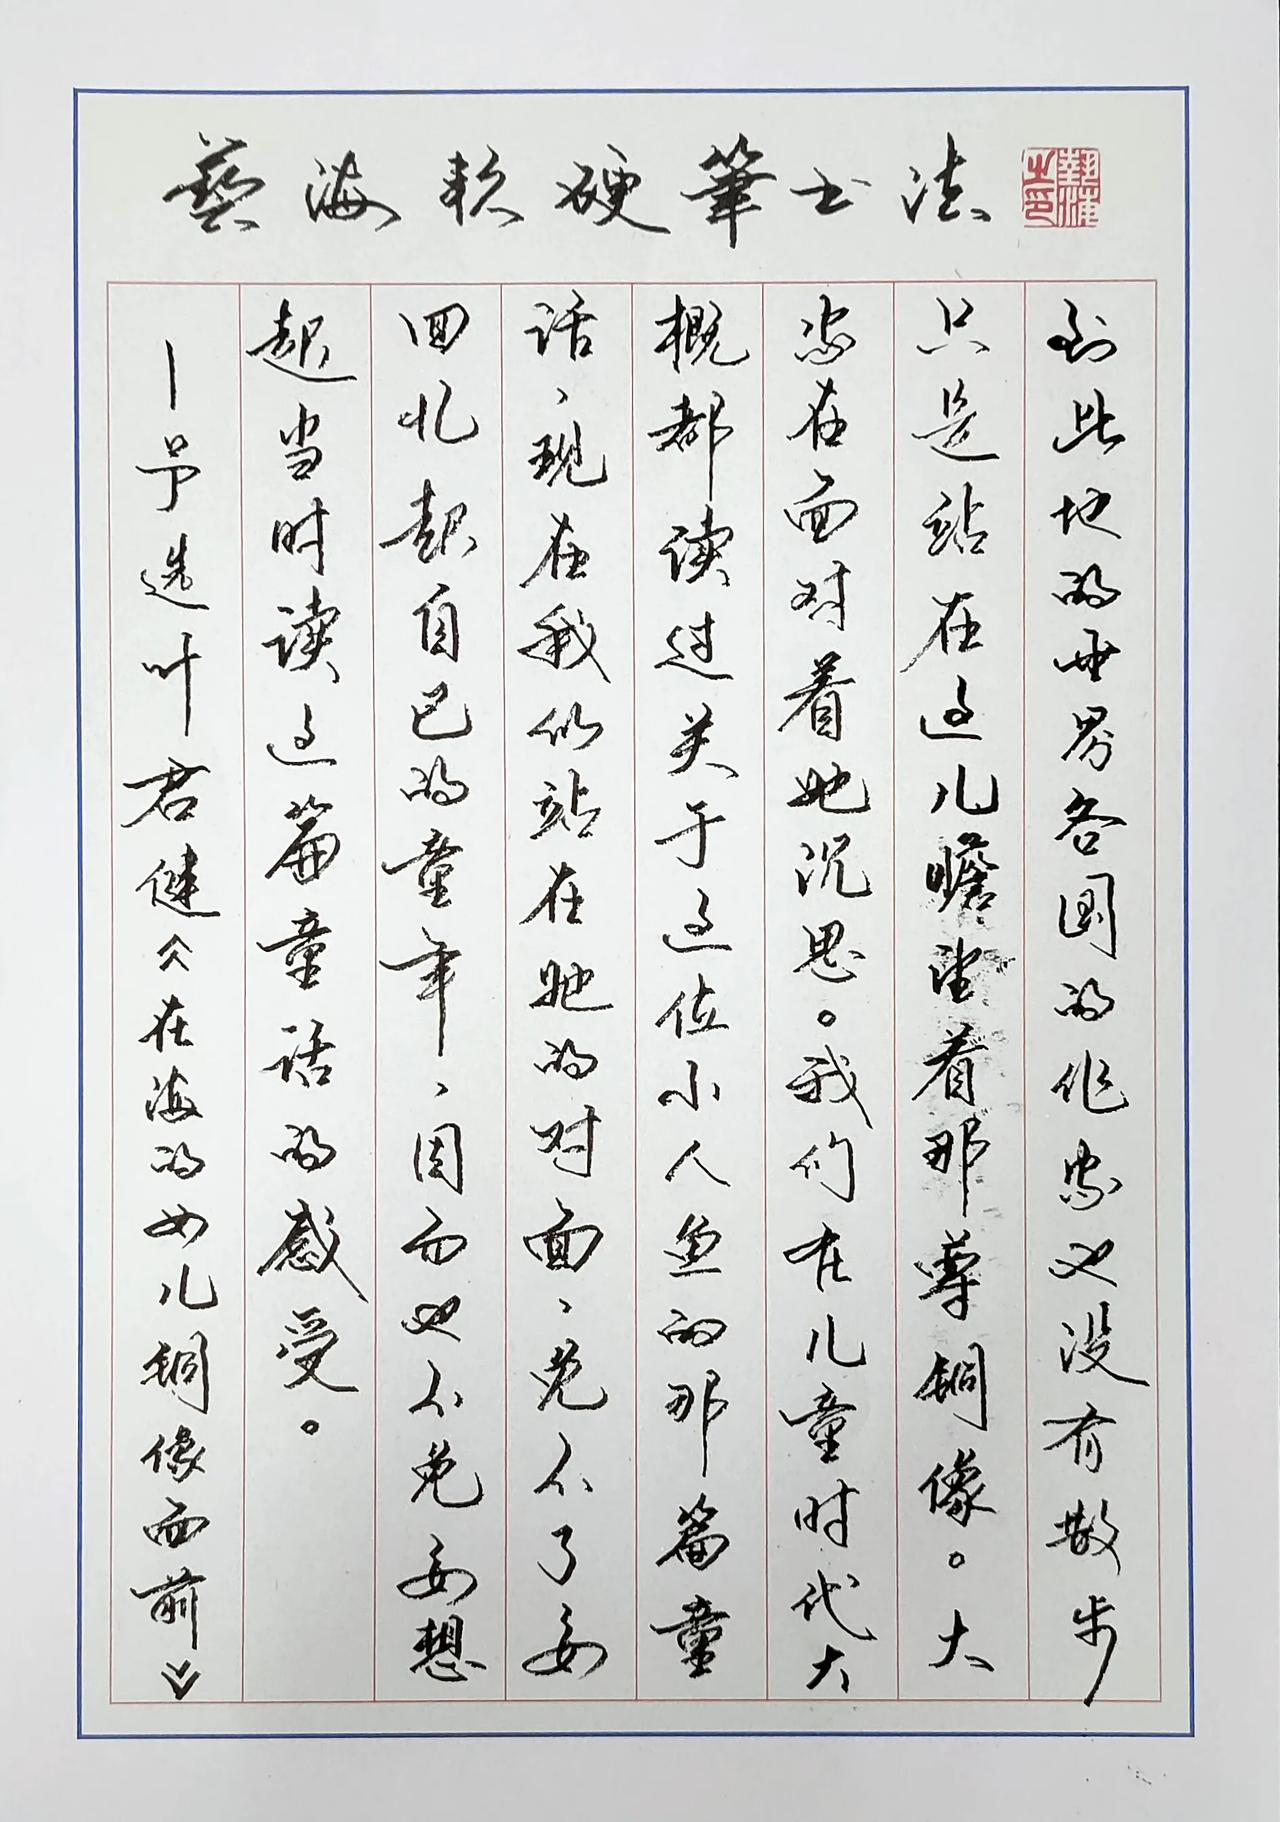 藝海軟硬筆书法
藝海之印
到此地的世界各国的作家也没有散步
只是站在这儿瞻望着那尊铜像。大
家在面对着她沉思。我们在儿童时代大
概都读过关于这位小人鱼的那篇童
话、现在我们站在她的对面、免不了要
回忆起自己的童年、因而也不免要想
起当时读这篇童话的感受。
—节选叶君健《在海的女儿铜像面前》